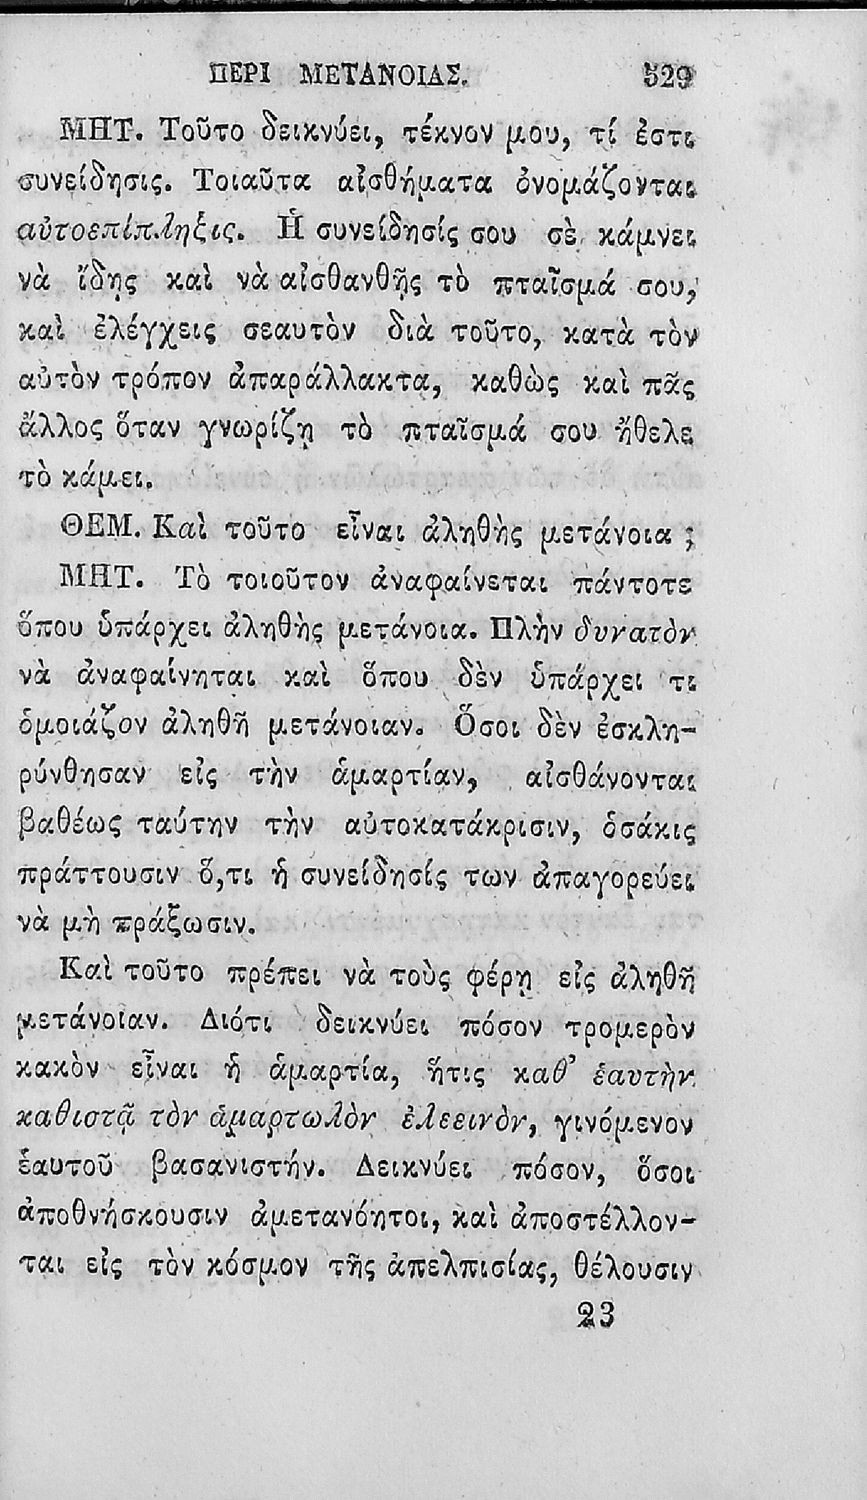 ΠΕΡΙ ΜΕΤΑΝΟΙΑΣ. 529
ΜΗΤ. Τοῦτο δεικνύει, τέκνον μου, τί ἐστι
συνείδησις. Τοιαῦτα αἰσθήματα ὀνομάζονται
αὐτοεπίπληξις. Ἡ συνείδησίς σου σὲ κάμνει
νὰ ἴδῃς καὶ νὰ αἰσθανθῇς τὸ πταῖσμά σου,
καὶ ἐλέγχεις σεαυτὸν διὰ τοῦτο, κατὰ τὸν
αὐτὸν τρόπον ἀπαράλλακτα, καθὼς καὶ πᾶς
ἄλλος ὅταν γνωρίζῃ τὸ πταῖσμά σου ἤθελε
τὸ κάμει.
ΘΕΜ. Καὶ τοῦτο εἶναι ἀληθὴς μετάνοια ;
ΜΗΤ. Τὸ τοιοῦτον ἀναφαίνεται πάντοτε
ὅπου ὑπάρχει ἀληθὴς μετάνοια. Πλὴν δυνατὸν
νὰ ἀναφαίνηται καὶ ὅπου δὲν ὑπάρχει τι
ὁμοιάζον ἀληθῆ μετάνοιαν. Ὅσοι δὲν ἐσκλη-
ρύνθησαν εἰς τὴν ἁμαρτίαν, αἰσθάνονται
βαθέως ταύτην τὴν αὐτοκατάκρισιν, ὁσάκις
πράττουσιν ὅ,τι ἡ συνείδησίς των ἀπαγορεύει
νὰ μὴ πράξωσιν.
Καὶ τοῦτο πρέπει νὰ τοὺς φέρῃ εἰς ἀληθῆ
μετάνοιαν. Διότι δεικνύει πόσον τρομερὸν
κακὸν εἶναι ἡ ἁμαρτία, ἥτις καθ' ἑαυτὴν
καθιστᾷ τὸν ἁμαρτωλὸν ἐλεεινὸν, γινόμενον
ἑαυτοῦ βασανιστήν. Δεικνύει πόσον, ὅσοι
ἀποθνήσκουσιν ἀμετανόητοι, καὶ ἀποστέλλον-
ται εἰς τὸν κόσμον τῆς ἀπελπισίας, θέλουσιν
23